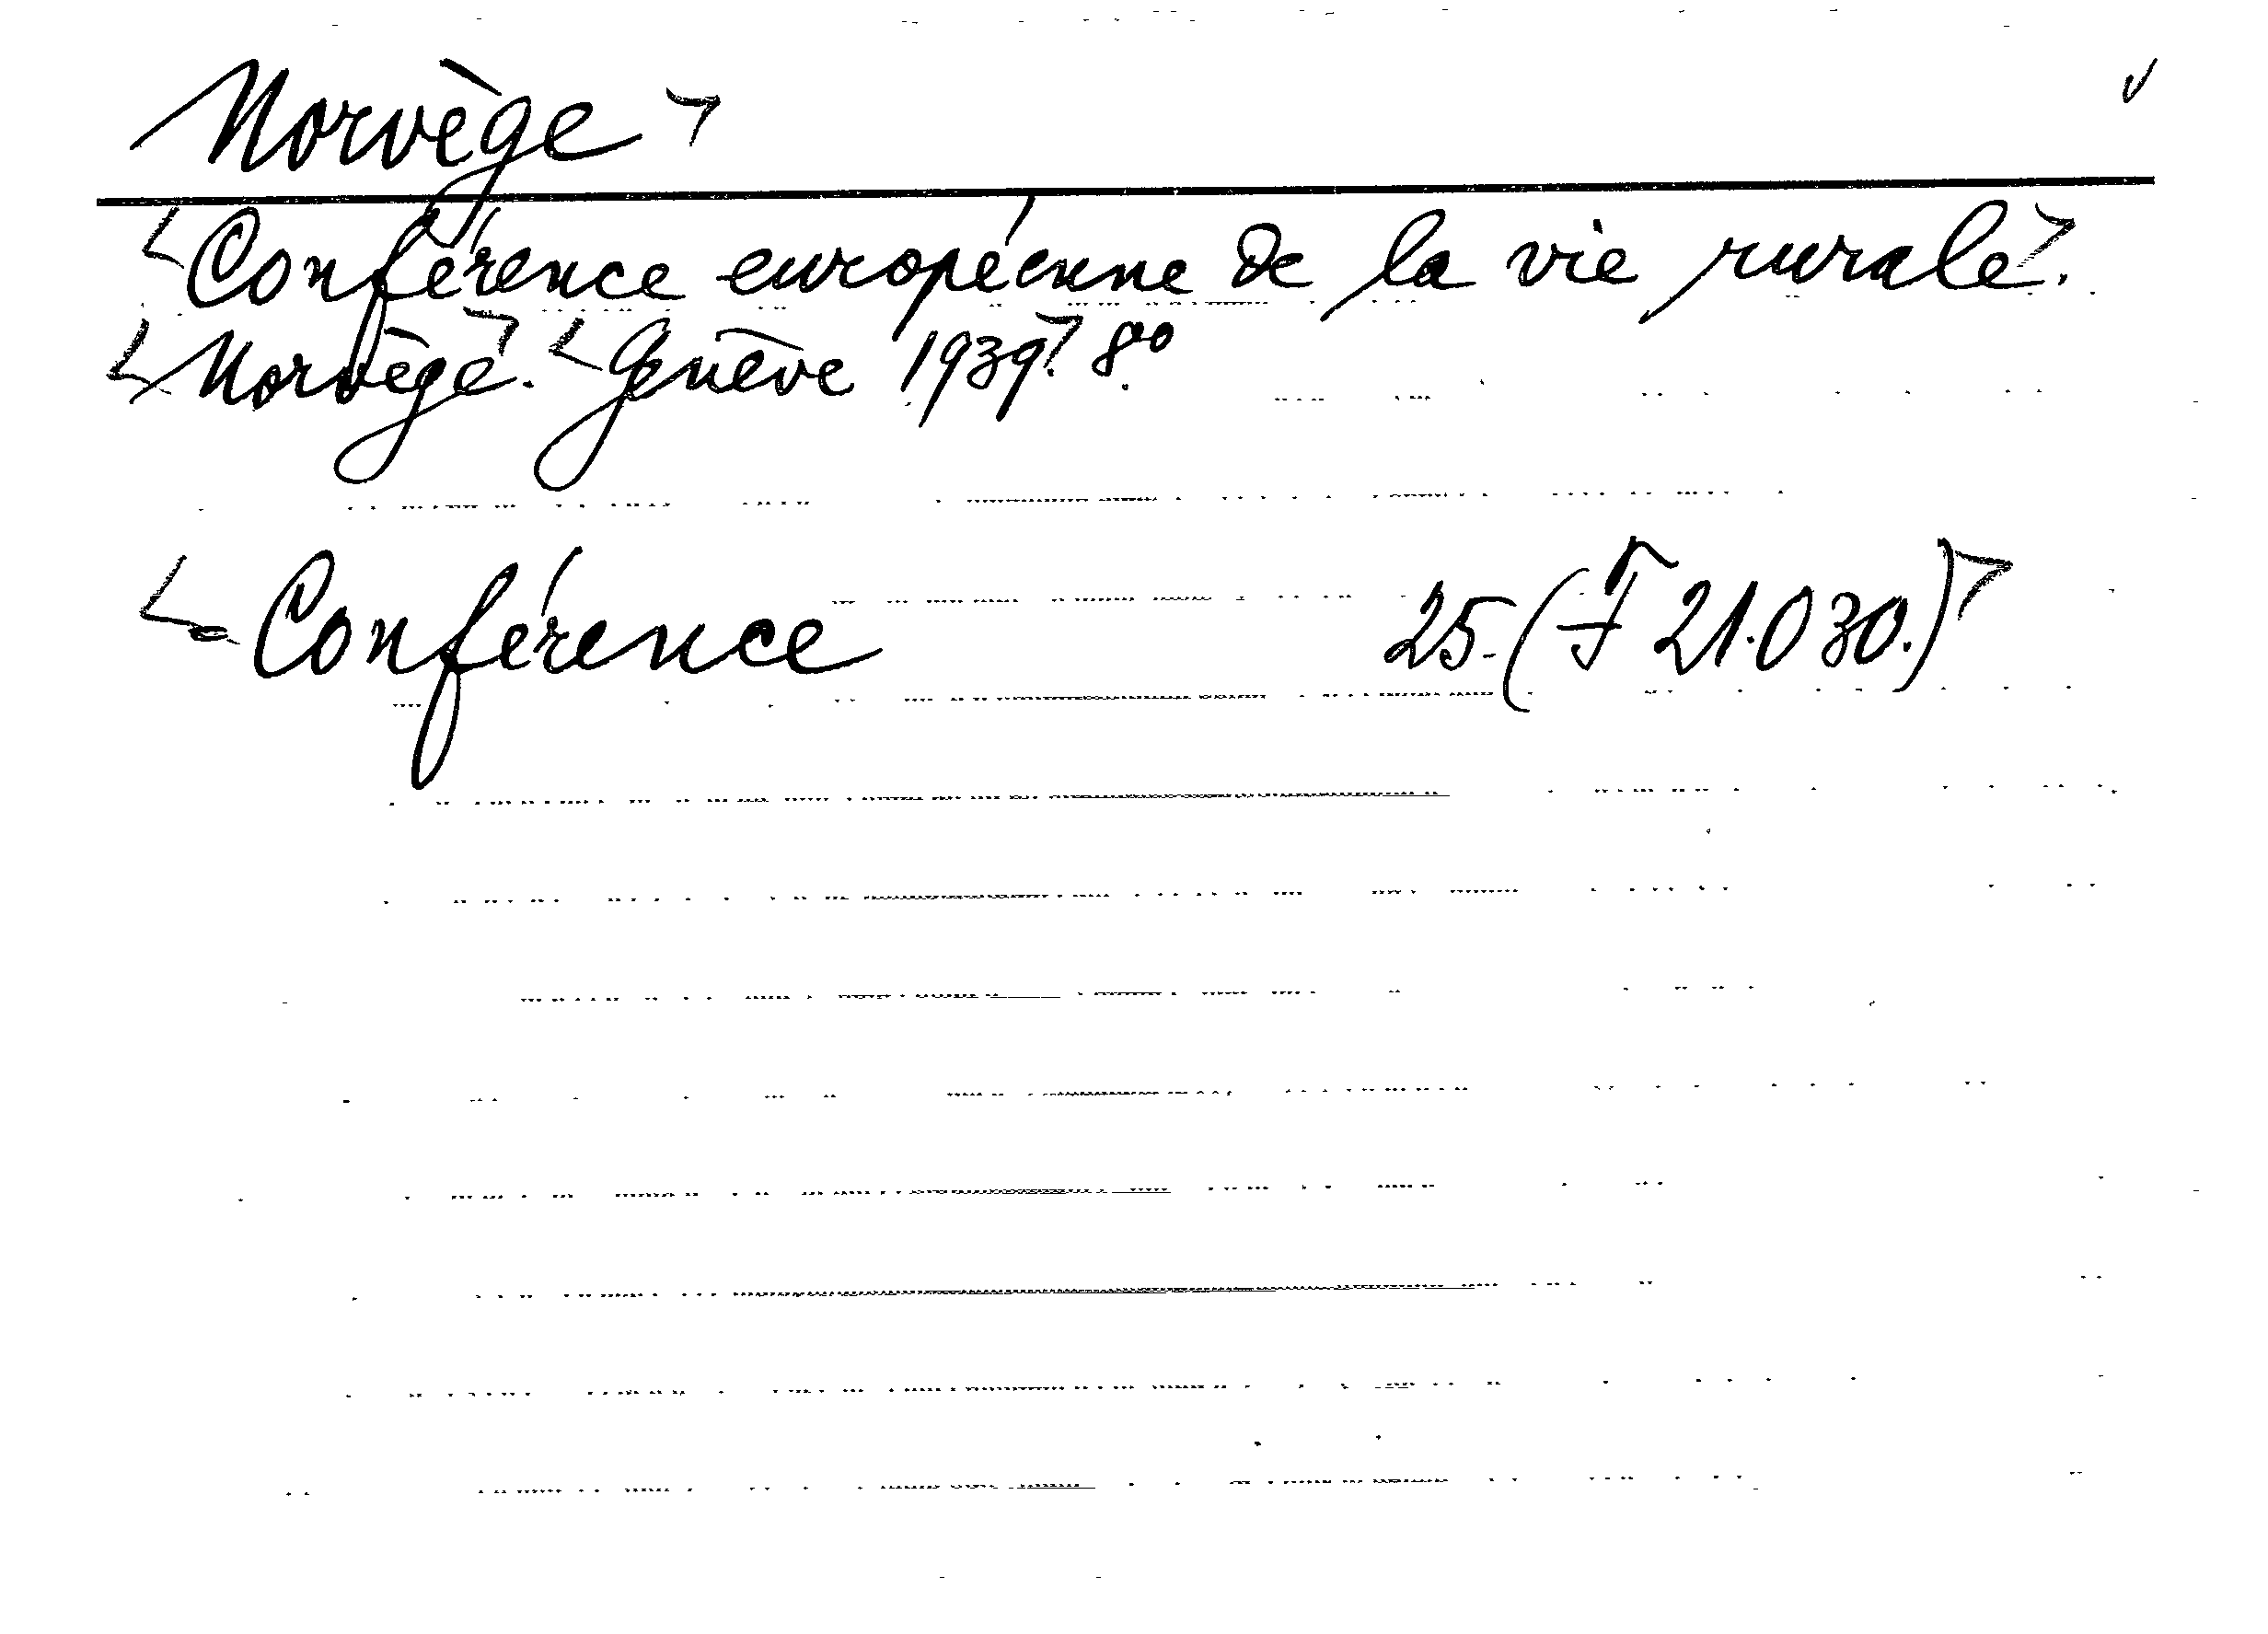 Norvège
Conférence européenne de la vie rurale.
Norvège. Genève 1939. 8º.
Conférence 25. (F 21.030.)